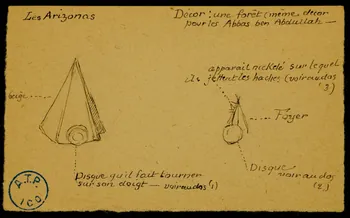 Les Arizonas
Décor : une forêt (même décor
pour les Abbas ben Abdullah —
apparait nickelé sur lequel
se jettent les haches (voir au dos
(3)
beige
Foyer
Disque qu'il fait tourner
sur son doigt — voir au dos (1)
Disque
voir au dos
(2)
A.T.P.
100